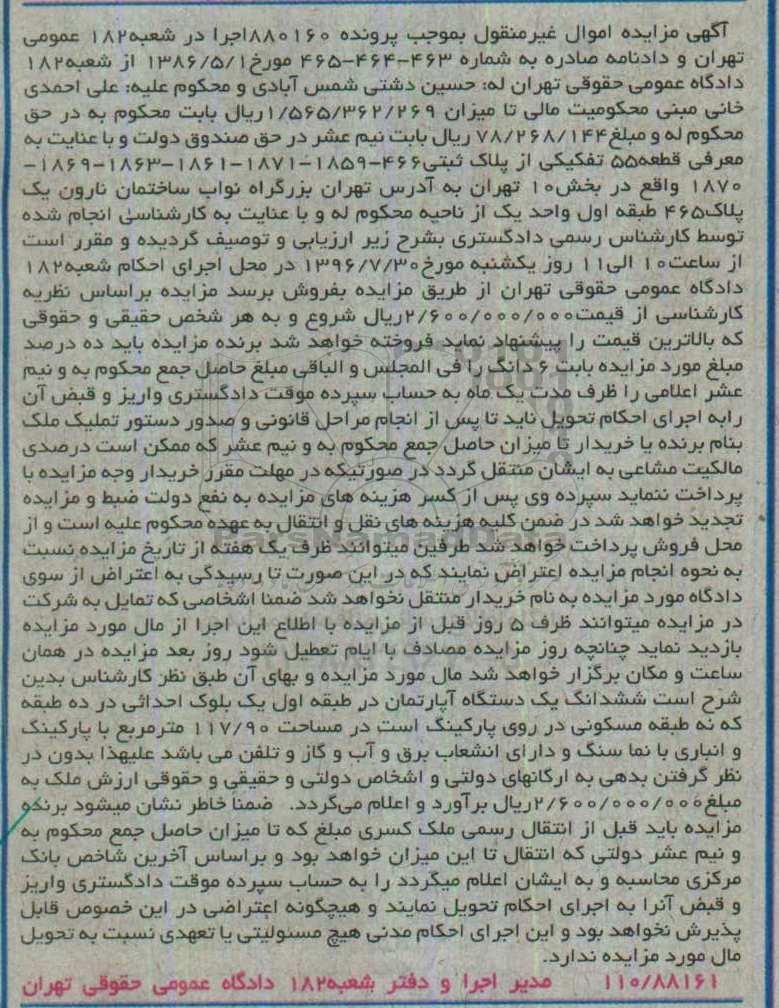 آگهی مزایده اموال غیرمنقول بموجب پرونده ۸۸۰۱۶۰اجرا در شعبه۱۸۲ عمومی
تهران و دادنامه صادره به شماره ۴۶۳-۴۶۴-۴۶۵ مورخ۱۳۸۶/۵/۱ از شعبه۱۸۲
دادگاه عمومی حقوقی تهران له: حسین دشتی شمس آبادی و محکوم علیه: علی احمدی
خانی مبنی محکومیت مالی تا میزان ۱/۵۶۵/۳۶۲/۲۶۹ریال بابت محکوم به در حق
محکوم له و مبلغ۷۸/۲۶۸/۱۴۴ ریال بابت نیم عشر در حق صندوق دولت و با عنایت به
معرفی قطعه۵۵ تفکیکی از پلاک ثبتی۴۶۶-۱۸۵۹-۱۸۷۱-۱۸۶۱-۱۸۶۳-۱۸۶۹-
۱۸۷۰ واقع در بخش۱۰ تهران به آدرس تهران بزرگراه نواب ساختمان نارون یک
پلاک۴۶۵ طبقه اول واحد یک از ناحیه محکوم له و با عنایت به کارشناسی انجام شده
توسط کارشناس رسمی دادگستری بشرح زیر ارزیابی و توصیف گردیده و مقرر است
از ساعت۱۰ الی۱۱ روز یکشنبه مورخ۱۳۹۶/۷/۳۰ در محل اجرای احکام شعبه۱۸۲
دادگاه عمومی حقوقی تهران از طریق مزایده بفروش برسد مزایده براساس نظریه
کارشناسی از قیمت۲/۶۰۰/۰۰۰/۰۰۰ریال شروع و به هر شخص حقیقی و حقوقی
که بالاترین قیمت را پیشنهاد نماید فروخته خواهد شد برنده مزایده باید ده درصد
مبلغ مورد مزایده بابت ۶ دانگ را فی المجلس و الباقی مبلغ حاصل جمع محکوم به و نیم
عشر اعلامی را ظرف مدت یک ماه به حساب سپرده موقت دادگستری واریز و قبض آن
رابه اجرای احکام تحویل ناید تا پس از انجام مراحل قانونی و صدور دستور تملیک ملک
بنام برنده یا خریدار تا میزان حاصل جمع محکوم به و نیم عشر که ممکن است درصدی
مالکیت مشاعی به ایشان منتقل گردد در صورتیکه در مهلت مقرر خریدار وجه مزایده با
پرداخت ننماید سپرده وی پس از کسر هزینه های مزایده به نفع دولت ضبط و مزایده
تجدید خواهد شد در ضمن کلیه هزینه های نقل و انتقال به عهده محکوم علیه است و از
محل فروش پرداخت خواهد شد طرفین میتوانند ظرف یک هفته از تاریخ مزایده نسبت
به نحوه انجام مزایده اعتراض نمایند که در این صورت تا رسیدگی به اعتراض از سوی
دادگاه مورد مزایده به نام خریدار منتقل نخواهد شد ضمنا اشخاصی که تمایل به شرکت
در مزایده میتوانند ظرف ۵ روز قبل از مزایده با اطلاع این اجرا از مال مورد مزایده
بازدید نماید چنانچه روز مزایده مصادف با ایام تعطیل شود روز بعد مزایده در همان
ساعت و مکان برگزار خواهد شد مال مورد مزایده و بهای آن طبق نظر کارشناس بدین
شرح است ششدانگ یک دستگاه آپارتمان در طبقه اول یک بلوک احداثی در ده طبقه
که نه طبقه مسکونی در روی پارکینگ است در مساحت ۱۱۷/۹۰ مترمربع با پارکینگ
و انباری با نما سنگ و دارای انشعاب برق و آب و گاز و تلفن می باشد علیهذا بدون در
نظر گرفتن بدهی به ارگانهای دولتی و اشخاص دولتی و حقیقی و حقوقی ارزش ملک به
مبلغ۲/۶۰۰/۰۰۰/۰۰۰ریال برآورد و اعلام می‌گردد. ضمنا خاطر نشان میشود برنده
مزایده باید قبل از انتقال رسمی ملک کسری مبلغ که تا میزان حاصل جمع محکوم به
و نیم عشر دولتی که انتقال تا این میزان خواهد بود و براساس آخرین شاخص بانک
مرکزی محاسبه و به ایشان اعلام میگردد را به حساب سپرده موقت دادگستری واریز
و قبض آنرا به اجرای احکام تحویل نمایند و هیچگونه اعتراضی در این خصوص قابل
پذیرش نخواهد بود و این اجرای احکام مدنی هیچ مسئولیتی یا تعهدی نسبت به تحویل
مال مورد مزایده ندارد.
۱۱۰/۸۸۱۶۱ مدیر اجرا و دفتر شعبه۱۸۲ دادگاه عمومی حقوقی تهران